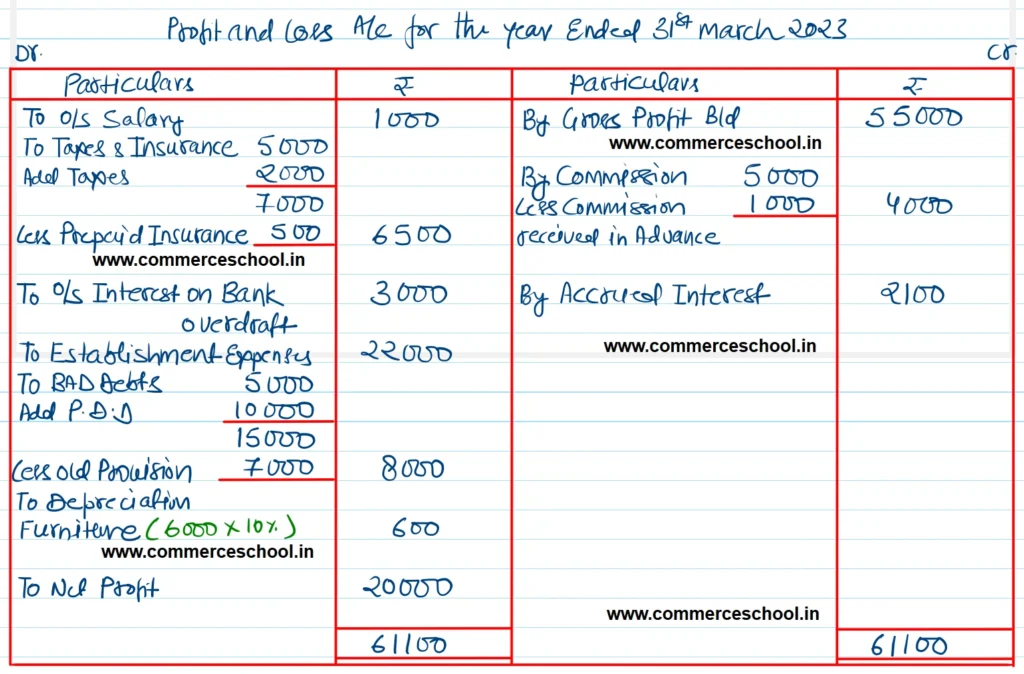 Profit and Loss A/c for the year Ended 31st March 2023
Dr. Cr.
Particulars ₹ Particulars ₹
To O/s Salary 1000 By Gross Profit B/d 55000
www.commerceschool.in
To Taxes & Insurance 5000
Add Taxes 2000 By Commission 5000
7000 Less Commission 1000 4000
Less Prepaid Insurance 500 6500 received in Advance
www.commerceschool.in
To O/s Interest on Bank 3000 By Accrued Interest 2100
overdraft
www.commerceschool.in
To Establishment Expenses 22000
To BAD Debts 5000
Add P.D.D 10000
15000
Less old Provision 7000 8000
To Depreciation
Furniture (6000 × 10%) 600
www.commerceschool.in
To Net Profit 20000
www.commerceschool.in
61100 61100